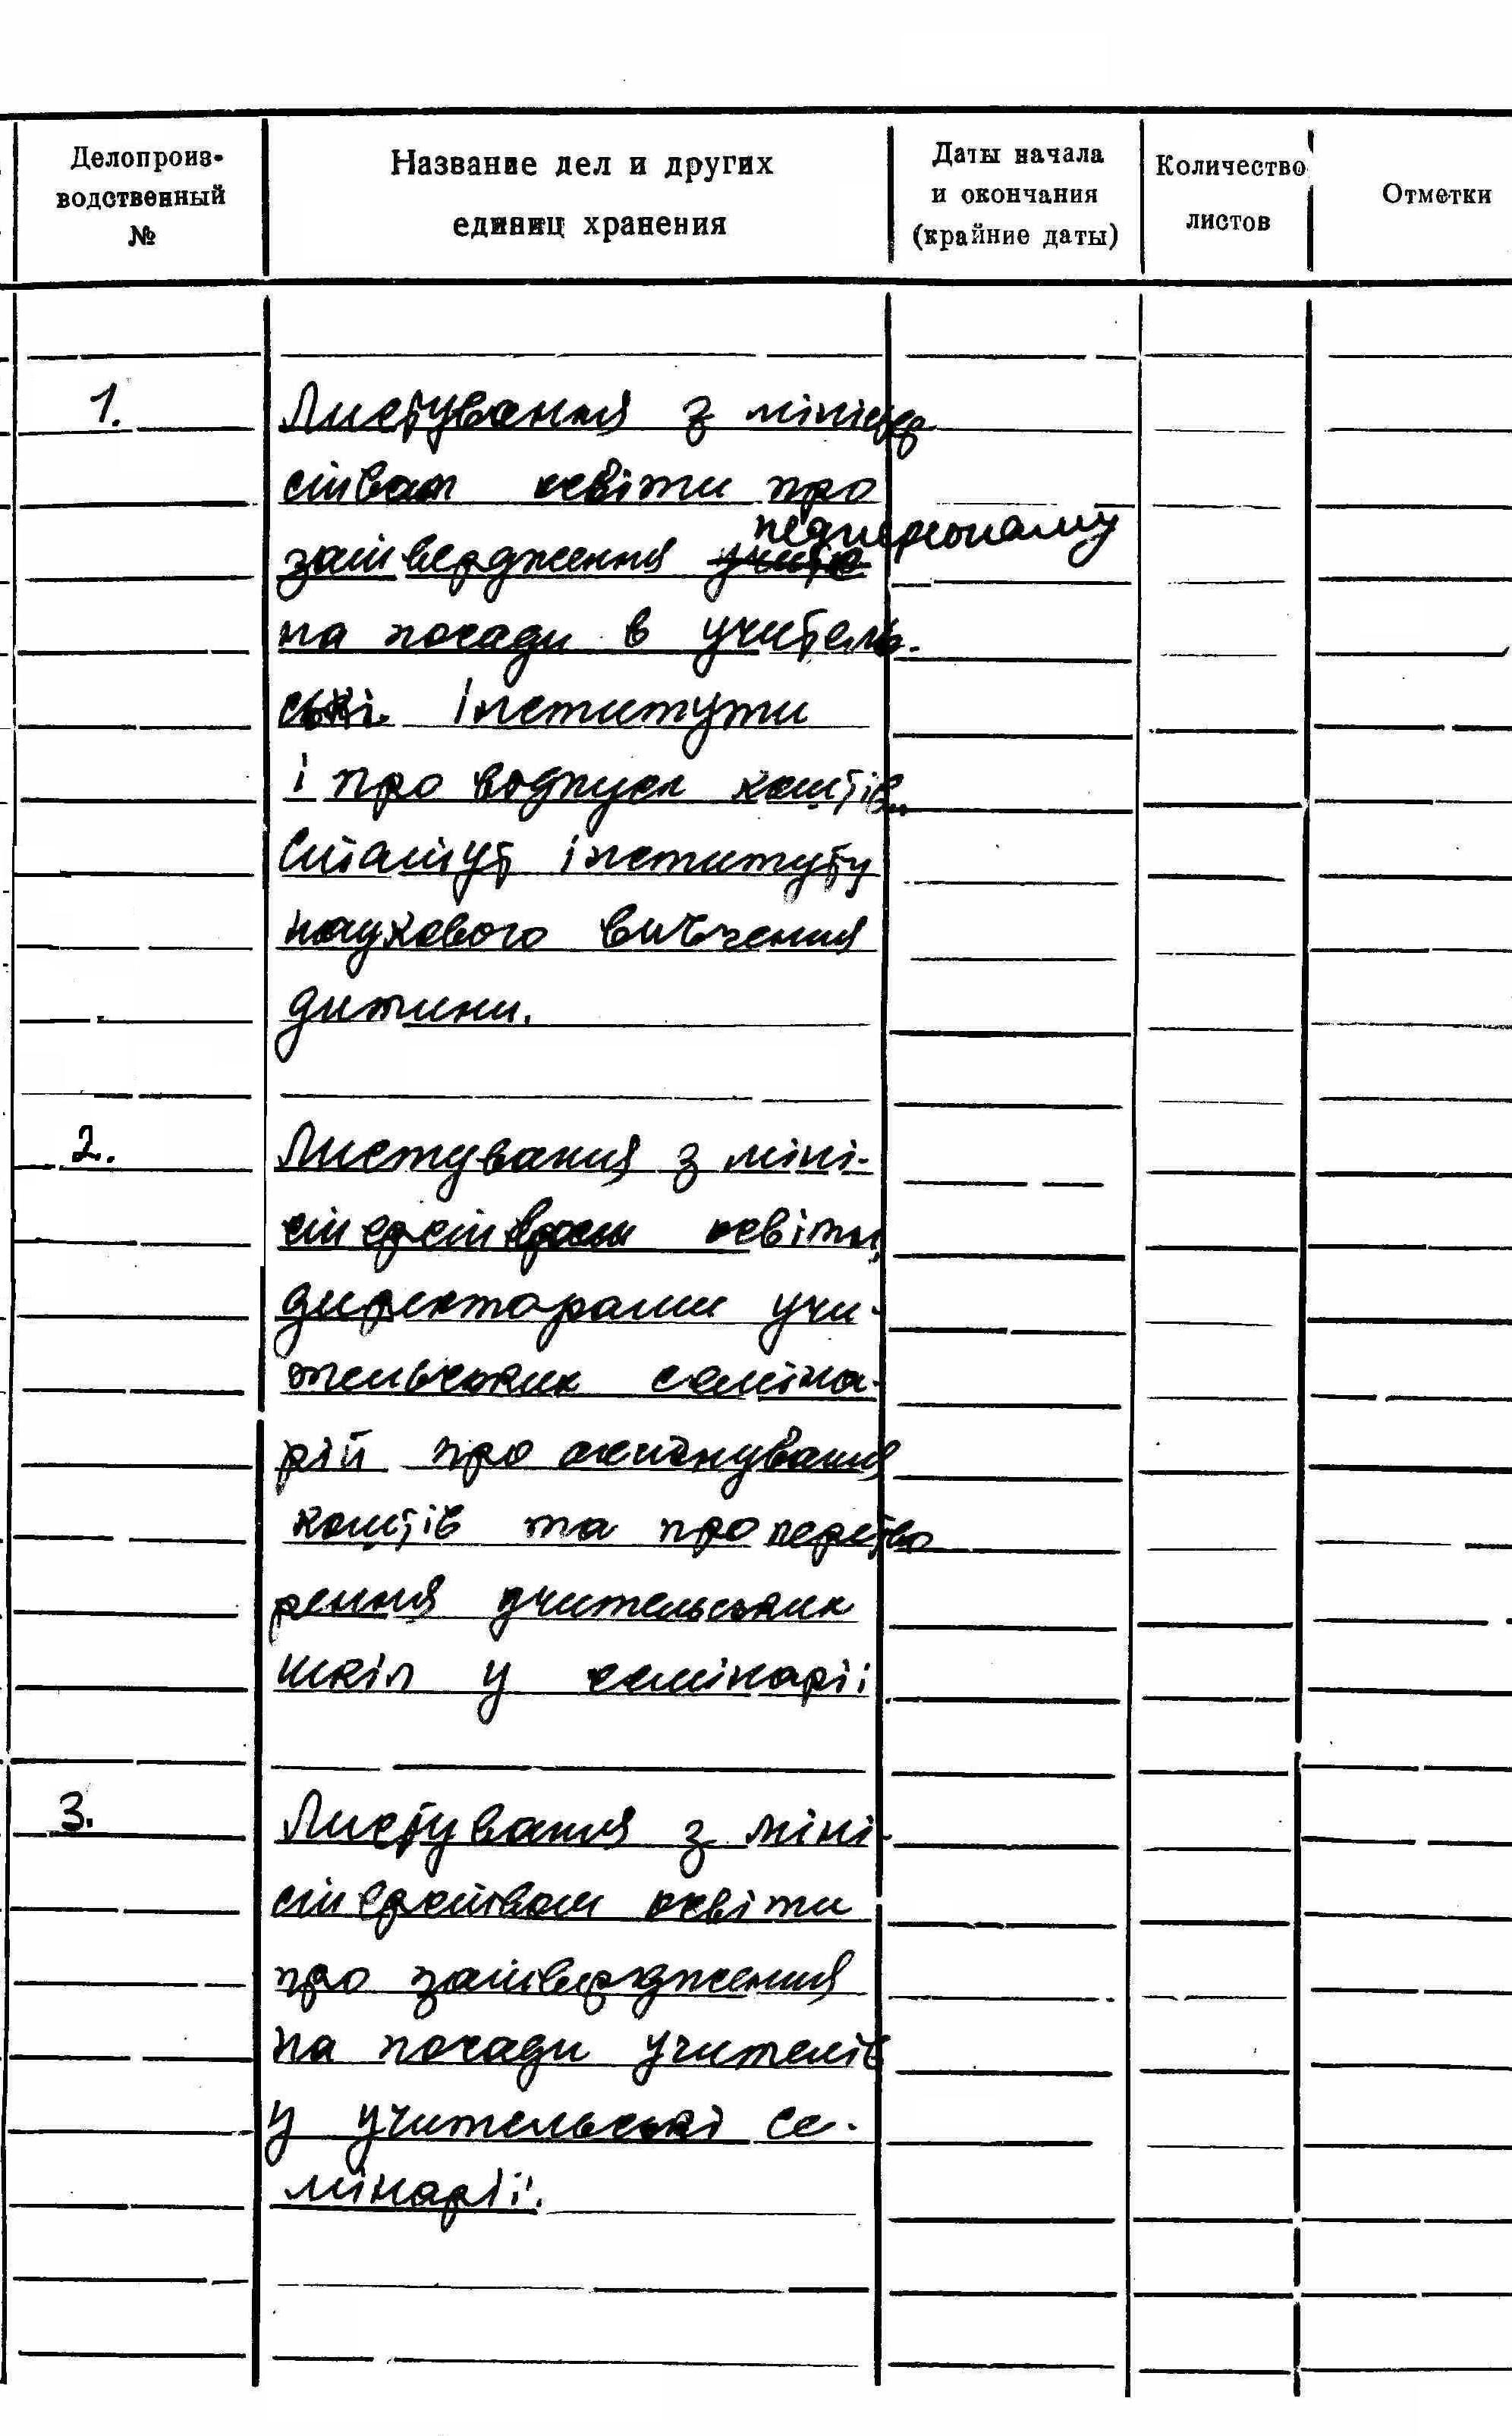 Делопроиз-
водственный
№
Название дел и других
единиц хранения
Даты начала
и окончания
(крайние даты)
Количество
листов
Отметки
1.
Листування з міністер
ством освіти про
педперсоналу
затвердження учите
на посади в учитель-
ські інститути
і про відпуск коштів.
Статут інституту
наукового вивчення
дитини.
2.
Листування з міні-
стерством освіти,
директорами учи-
тельських семіна-
рій про асигнування
коштів та про перетво
рення учительських
шкіл у семінарії
3.
Листування з міні-
стерством освіти
про затвердження
на посади учителів
у учительські се-
мінарії.